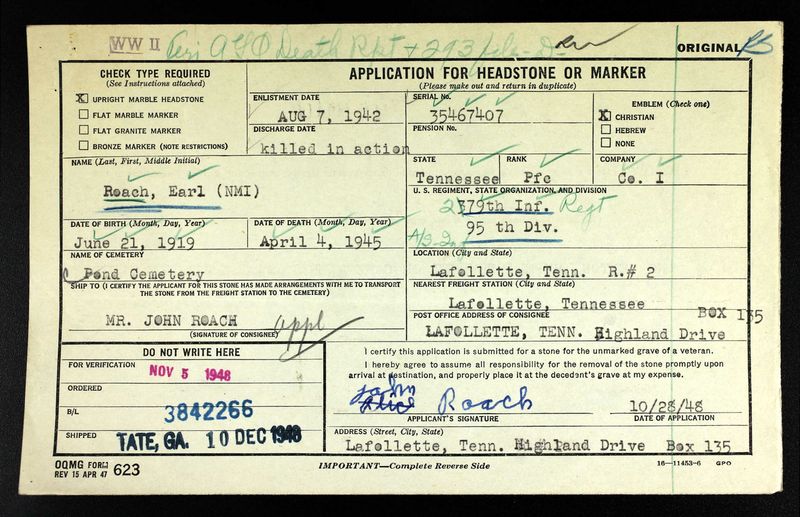 WW II
AGO Death Rpt + 293 file
ORIGINAL
CHECK TYPE REQUIRED
(See Instructions attached)
X UPRIGHT MARBLE HEADSTONE
FLAT MARBLE MARKER
FLAT GRANITE MARKER
BRONZE MARKER (NOTE RESTRICTIONS)
APPLICATION FOR HEADSTONE OR MARKER
(Please make out and return in duplicate)
ENLISTMENT DATE
AUG 7, 1942
DISCHARGE DATE
killed in action
SERIAL No.
35467407
PENSION No.
EMBLEM (Check one)
X CHRISTIAN
HEBREW
NONE
NAME (Last, First, Middle Initial)
Roach, Earl (NMI)
STATE
Tennessee
RANK
Pfc
COMPANY
Co. I
U. S. REGIMENT, STATE ORGANIZATION, AND DIVISION
379th Inf. Regt
95 th Div.
DATE OF BIRTH (Month, Day, Year)
June 21, 1919
DATE OF DEATH (Month, Day, Year)
April 4, 1945
NAME OF CEMETERY
Pond Cemetery
LOCATION (City and State)
Lafollette, Tenn. R.# 2
SHIP TO (I CERTIFY THE APPLICANT FOR THIS STONE HAS MADE ARRANGEMENTS WITH ME TO TRANSPORT
THE STONE FROM THE FREIGHT STATION TO THE CEMETERY)
MR. JOHN ROACH appl
(SIGNATURE OF CONSIGNEE)
NEAREST FREIGHT STATION (City and State)
Lafollette, Tennessee
POST OFFICE ADDRESS OF CONSIGNEE BOX 135
LAFOLLETTE, TENN. Highland Drive
DO NOT WRITE HERE
FOR VERIFICATION
NOV 5 1948
ORDERED
B/L
3842266
SHIPPED
TATE, GA. 10 DEC 1948
I certify this application is submitted for a stone for the unmarked grave of a veteran.
I hereby agree to assume all responsibility for the removal of the stone promptly upon
arrival at destination, and properly place it at the decedent's grave at my expense.
John
Roach
10/28/48
APPLICANT'S SIGNATURE
DATE OF APPLICATION
ADDRESS (Street, City, State)
Lafollette, Tenn. Highland Drive Box 135
OQMG FORM
REV 15 APR 47 623
IMPORTANT—Complete Reverse Side
16—11453-6 GPO